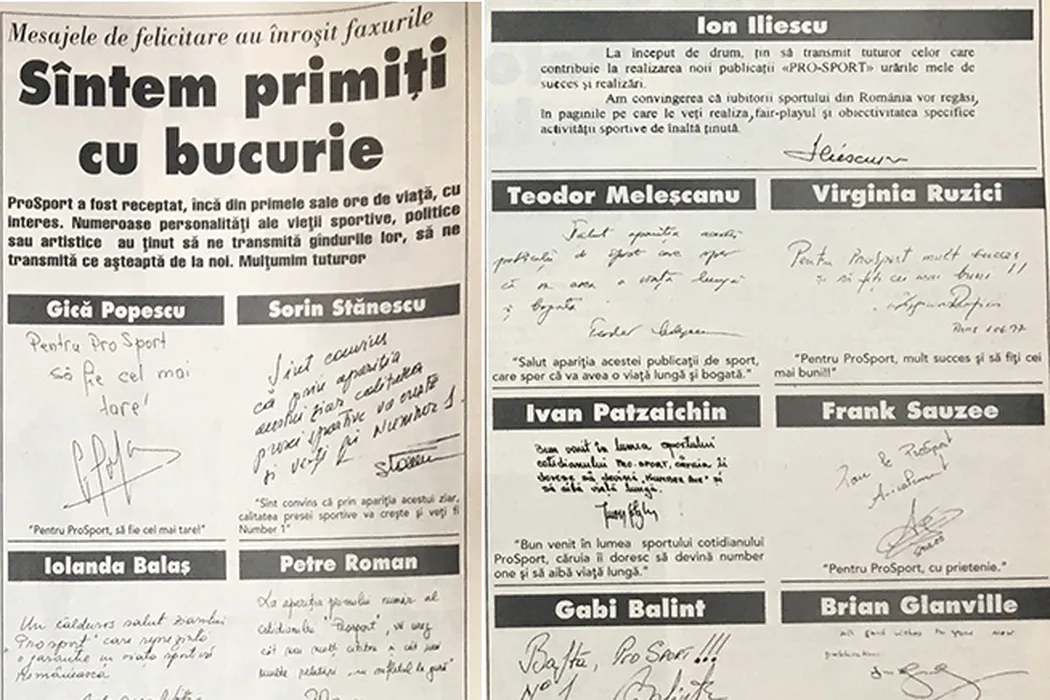 Mesajele de felicitare au înroșit faxurile
Sîntem primiți
cu bucurie
ProSport a fost receptat, încă din primele sale ore de viață, cu
interes. Numeroase personalități ale vieții sportive, politice
sau artistice au ținut să ne transmită gîndurile lor, să ne
transmită ce așteaptă de la noi. Mulțumim tuturor
Gică Popescu
Pentru Pro Sport
să fie cel mai
tare!
"Pentru ProSport, să fie cel mai tare!"
Sorin Stănescu
Sînt convins
că prin apariția
acestui ziar calitatea
presei sportive va crește
și veți fi Number 1.
"Sint convins că prin apariția acestui ziar,
calitatea presei sportive va crește și veți fi
Number 1"
Iolanda Balaș
Un călduros salut ziarului
"Prosport" care reprezintă
o garanție în viața sportivă
Românească
Petre Roman
La apariția primului număr al
cotidianului "Prosport", vă urez
cît mai mulți cititori și cît mai
Ion Iliescu
La început de drum, țin să transmit tuturor celor care
contribuie la realizarea noii publicații «PRO-SPORT» urările mele de
succes și realizări.
Am convingerea că iubitorii sportului din România vor regăsi,
în paginile pe care le veți realiza, fair-playul și obiectivitatea specifice
activității sportive de înaltă ținută.
Iliescu
Teodor Meleșcanu
Salut apariția acestei
publicații de sport care sper
că va avea o viață lungă
și bogată
Teodor Meleșcanu
"Salut apariția acestei publicații de sport,
care sper că va avea o viață lungă și bogată."
Virginia Ruzici
Pentru ProSport mult succes
și să fiți cei mai buni!!
Virginia Ruzici
"Pentru ProSport, mult succes și să fiți cei
mai buni!!"
Ivan Patzaichin
Bun venit în lumea sportului
cotidianului PRO-SPORT, căruia îi
doresc să devină "NUMBER ONE" și
să aibă viață lungă.
"Bun venit în lumea sportului cotidianului
ProSport, căruia îi doresc să devină number
one și să aibă viață lungă."
Frank Sauzee
Pour le ProSport
"Pentru ProSport, cu prietenie."
Gabi Balint
Bafta, PRO SPORT!!!
Nº 1
Balint
Brian Glanville
All good wishes to your new
publication.